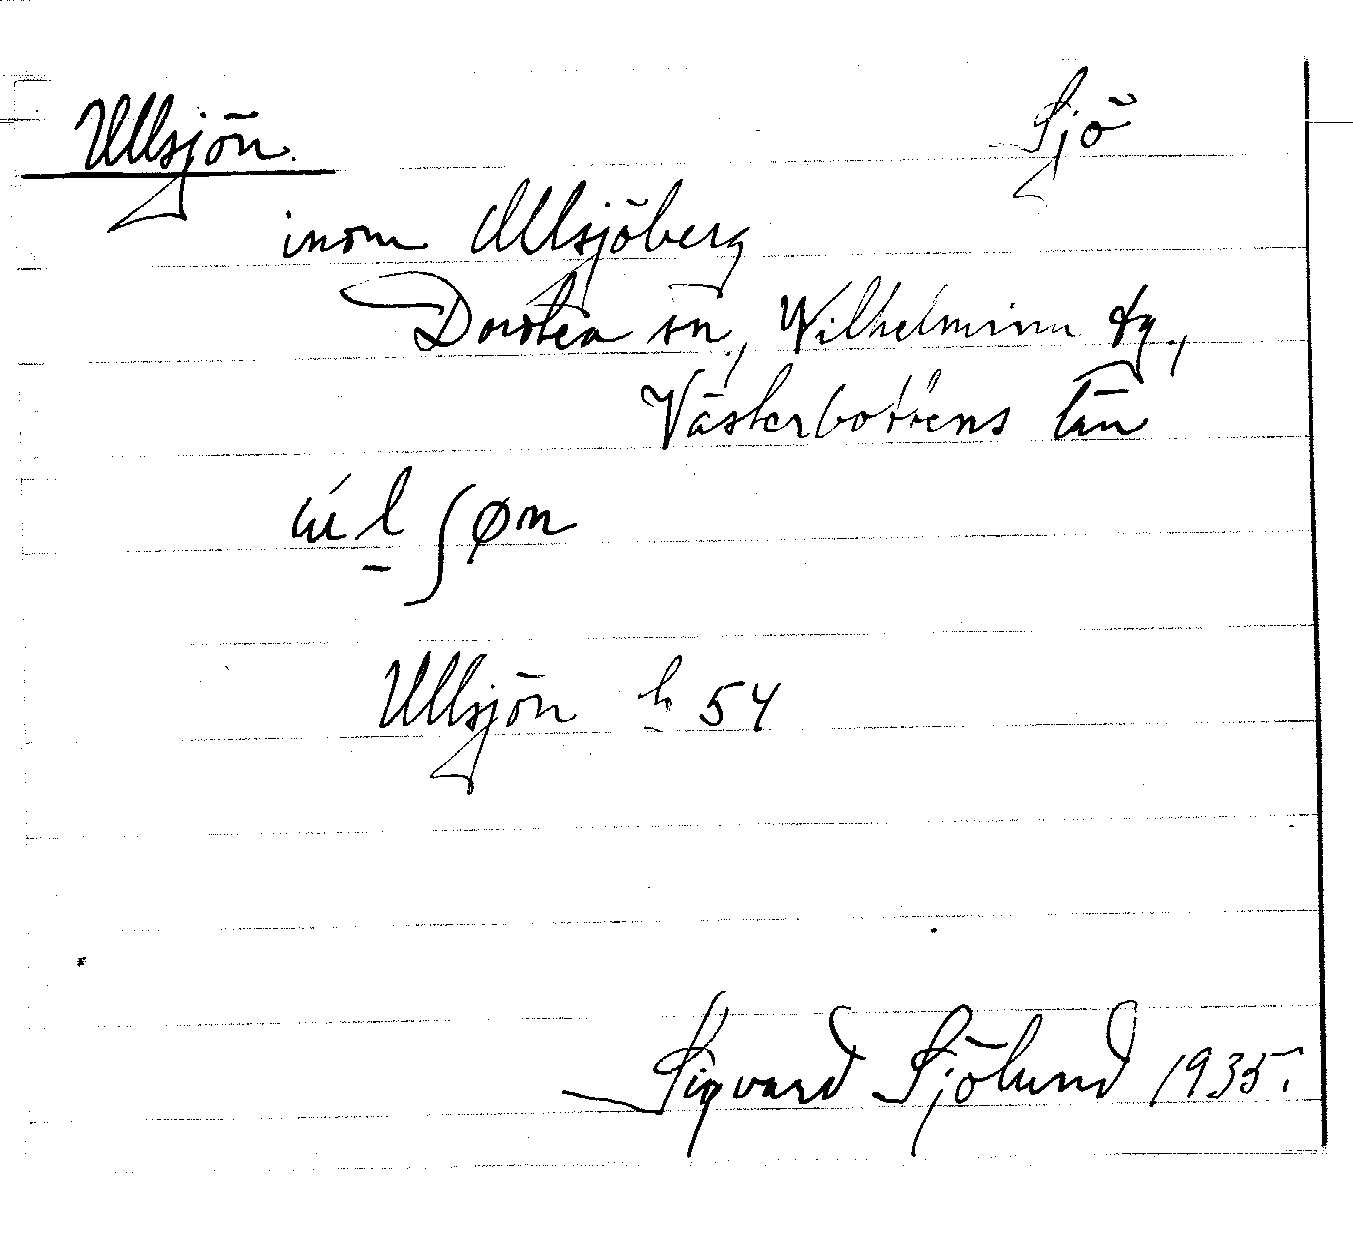 Ullsjön. Sjö
inom Ullsjöberg
Dorotea sn, Wilhelmina tg.,
Västerbottens län
úl̲ʃøn
Ullsjön h 54
Sigvard Sjölund 1935.